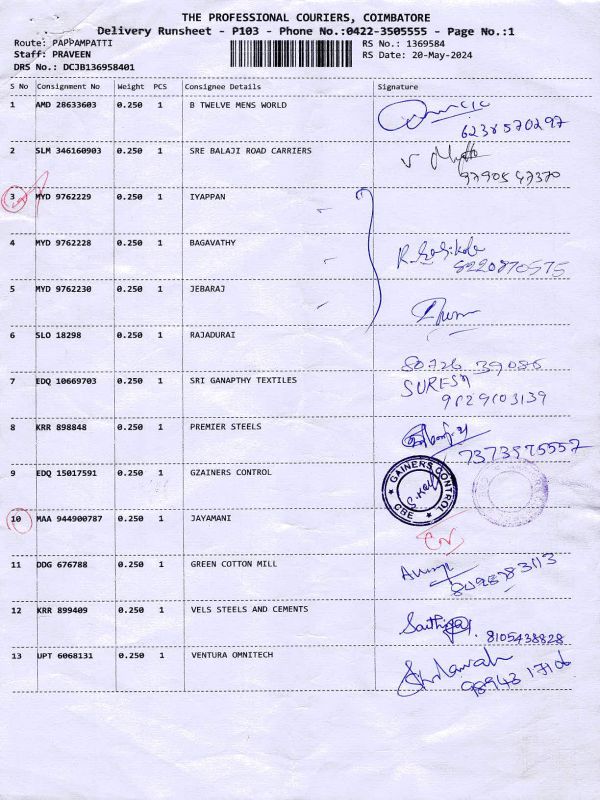 THE PROFESSIONAL COURIERS, COIMBATORE
Delivery Runsheet - P103 - Phone No.:0422-3505555 - Page No.:1
Route: PAPPAMPATTI RS No.: 1369584
Staff: PRAVEEN RS Date: 20-May-2024
DRS No.: DCJB136958401
S No Consignment No Weight PCS Consignee Details Signature
1 AMD 28633603 0.250 1 B TWELVE MENS WORLD
6238570297
2 SLM 346160903 0.250 1 SRE BALAJI ROAD CARRIERS
9790547370
3 MYD 9762229 0.250 1 IYAPPAN
4 MYD 9762228 0.250 1 BAGAVATHY
8220870575
5 MYD 9762230 0.250 1 JEBARAJ
6 SLO 18298 0.250 1 RAJADURAI
80726 39086
7 EDQ 10669703 0.250 1 SRI GANAPTHY TEXTILES SURESH
9629603139
8 KRR 898848 0.250 1 PREMIER STEELS
7373575557
9 EDQ 15017591 0.250 1 GZAINERS CONTROL
GAINERS CONTROL
CBE
10 MAA 944900787 0.250 1 JAYAMANI
11 DDG 676788 0.250 1 GREEN COTTON MILL
12 KRR 899409 0.250 1 VELS STEELS AND CEMENTS
8105438828
13 UPT 6068131 0.250 1 VENTURA OMNITECH
98943 17106